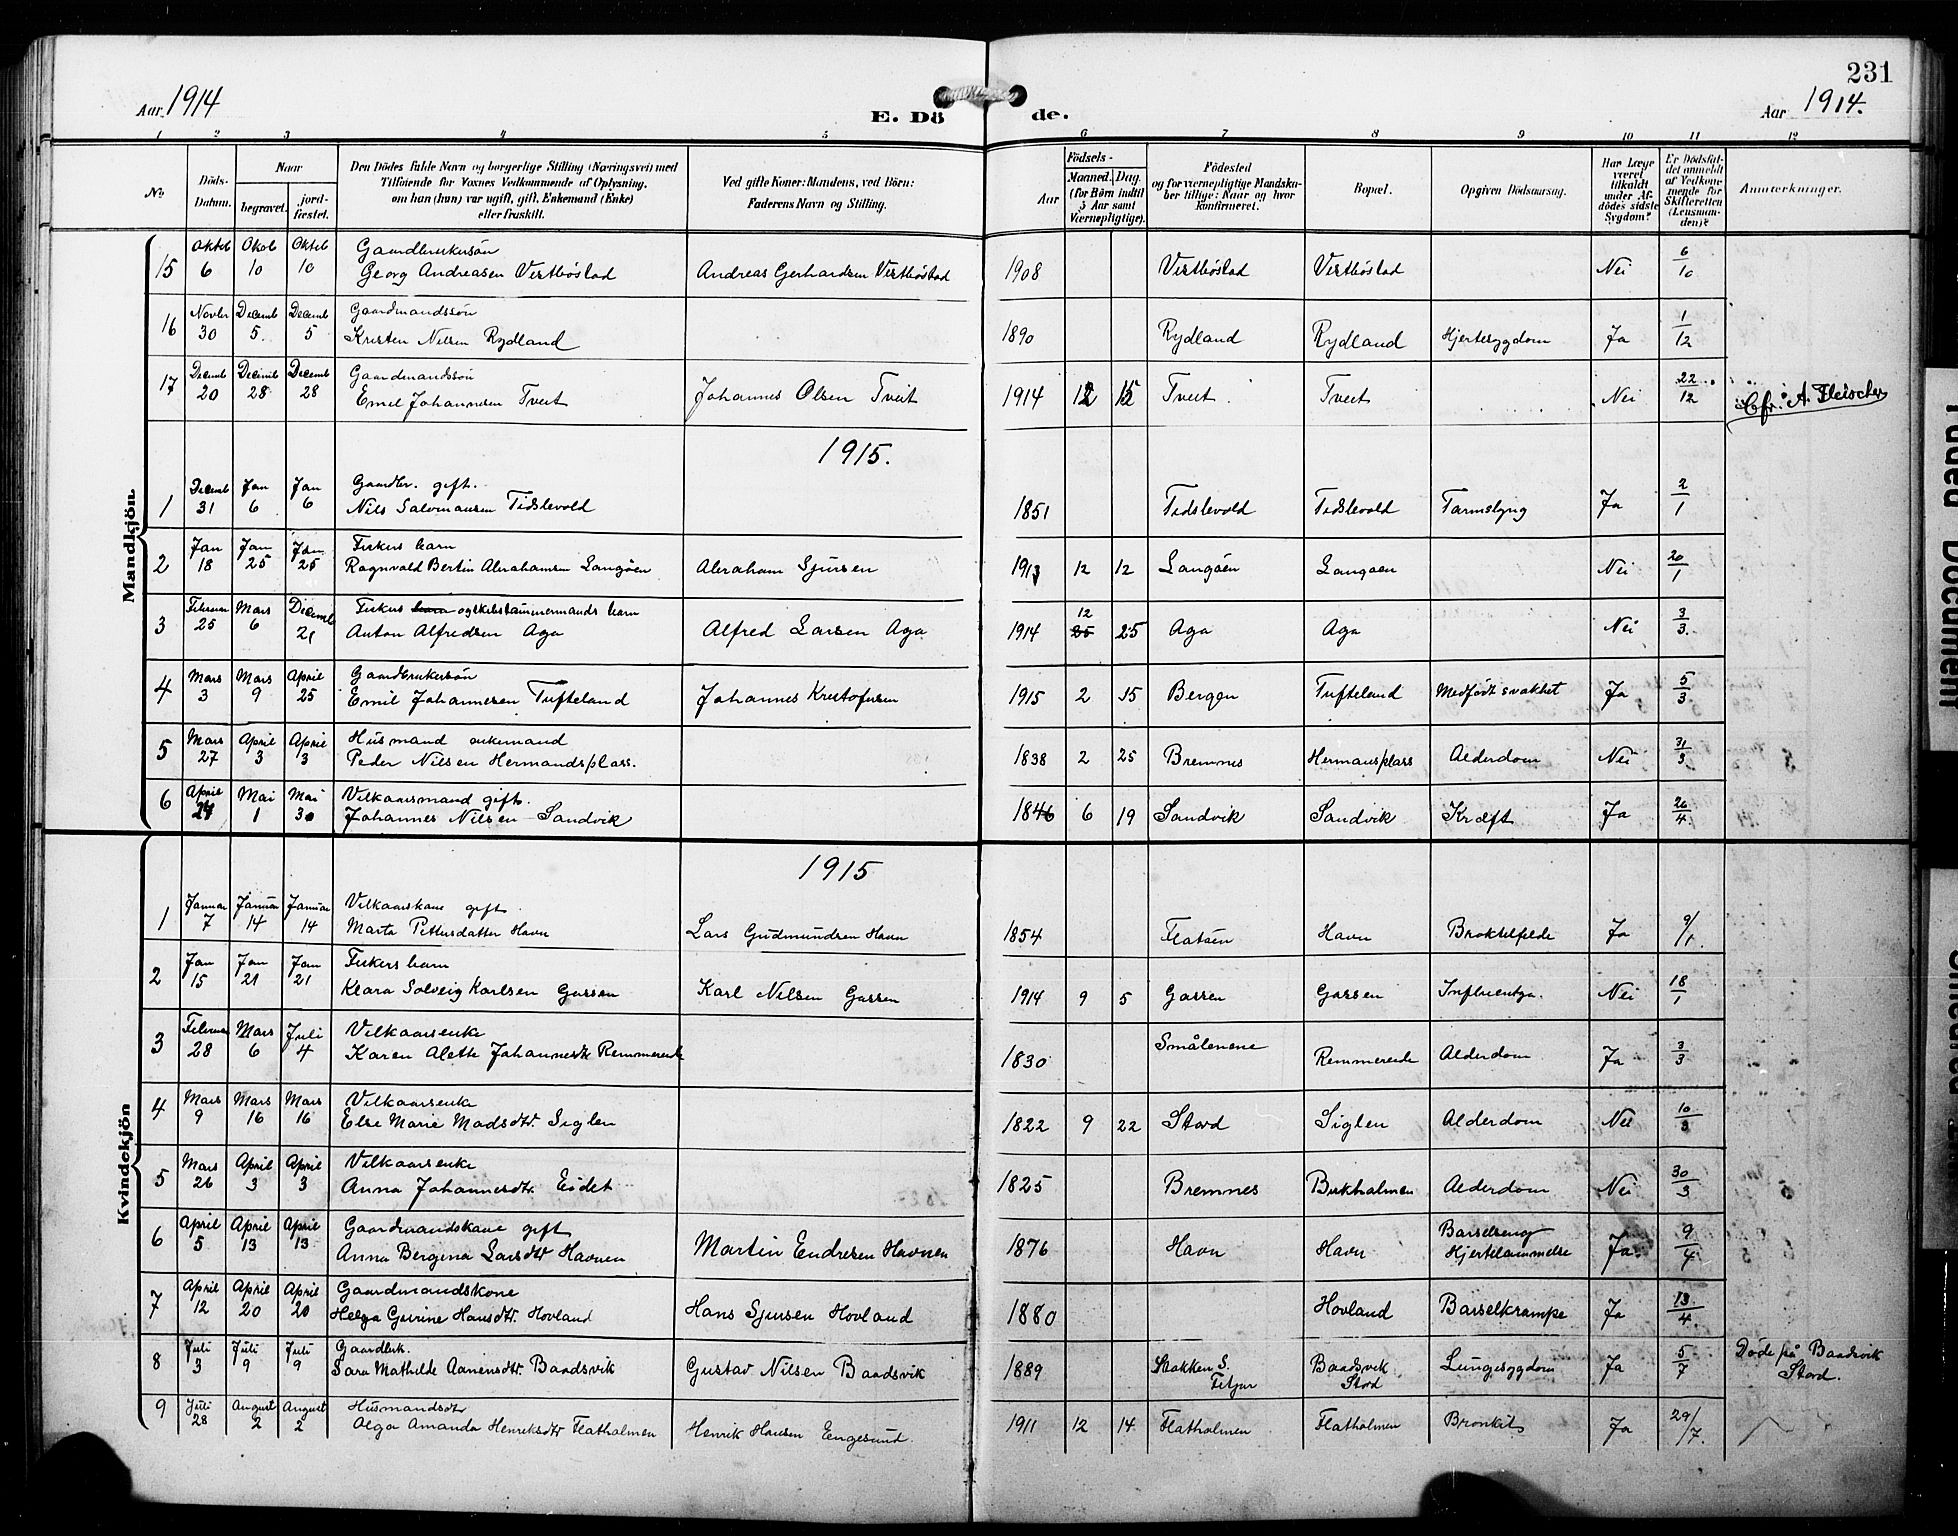 231
Aar 1914
E. Döde.
Aar 1914.
1 2 3 4 5 6 7 8 9 10 11 12
No. | Döds-Datum. | Naar begravet. | jordfæstet. | Den Dödes fulde Navn og borgerlige Stilling (Næringsvei) med Tilföiende for Voxnes Vedkommende af Oplysning, om han (hun) var ugift, gift, Enkemand (Enke) eller fraskilt. | Ved gifte Koner: Mandens, ved Börn: Faderens Navn og Stilling. | Födsels- Aar | Maaned. Dag. (for Börn indtil 3 Aar samt Værnepligtige). | Födested og for værnepligtige Mandskaber tillige: Naar og hvor konfirmeret. | Bopæl. | Opgiven Dödsaarsag. | Har Læge været tilkaldt under Afdödes sidste Sygdom? | Er Dödsfaldet anmeldt af Vedkommende for Skifteretten (Lensmanden)? | Anmærkninger.
Mandkjön.
15 | Oktob 6 | Okob 10 | Oktob 10 | Gaardbrukersön Georg Andreasen Vestböstad | Andreas Gerhardsen Vestböstad | 1908 | Vestböstad | Vestböstad | Nei | 6/10
16 | Novbr 30 | Decemb 5. | Decemb 5 | Gaardmandssön Kristen Nilsen Rydland | 1890 | Rydland | Rydland | Hjertesygdom | Ja | 1/12
17 | Decemb 20 | Decemb 28 | Decemb 28 | Gaardmandssön Emil Johannesen Tveit | Johannes Olsen Tveit | 1914 | 12 | 15 | Tveit | Tveit | Nei | 22/12 | Cfr. A. Fleischer
1915.
1 | Decemb 31 | Jan 6 | Jan 6 | Gaardbr. gift. Nils Salomonsen Tidslevold | 1851 | Tidslevold | Tidslevold | Tarmslyng | Ja | 2/1
2 | Jan 18 | Jan 25 | Jan 25 | Fiskers barn Ragnvald Bertin Abrahamsen Langöen | Abraham Sjursen | 1913 | 12 | 12 | Langöen | Langöen | Nei | 20/1
3 | Februar 25 | Mars 6 | Decemb 21 | Fiskers barn og skibstømmermands barn Anton Alfredsen Aga | Alfred Larsen Aga | 1914 | 12 25 | 25 | Aga | Aga | Nei | 3/3.
4 | Mars 3 | Mars 9 | April 25 | Gaardbrukersön Emil Johannesen Tufteland | Johannes Kristofersen | 1915 | 2 | 15 | Bergen | Tufteland | Medfödt svakhet | Ja | 5/3.
5 | Mars 27 | April 3 | April 3 | Husmand enkemand Peder Nilsen Hermandsplass. | 1838 | 2 | 25 | Bremnes | Hermansplass | Alderdom | Nei | 31/3
6 | April 24 | Mai 1 | Mai 30 | Vilkaarsmand gift. Johannes Nilsen Sandvik | 1846 | 6 | 19 | Sandvik | Sandvik | Kræft | Ja | 26/4.
Kvindekjön
1915
1 | Januar 7 | Januar 14 | Januar 14 | Vilkaarskone gift. Marta Pettersdatter Havn | Lars Gudmundsen Havn | 1854 | Flatöen | Havn | Broktilfelde | Ja | 9/1.
2 | Jan 15 | Jan 21 | Jan 21 | Fiskers barn Klara Solveig Karlsen Gassen | Karl Nilsen Gassen | 1914 | 9 | 5 | Gassen | Gassen | Influentza. | Nei | 18/1
3 | Februar 28 | Mars 6 | Juli 4 | Vilkaarsenke Karen Alette Johannesdtr Remmereide | 1830 | Smålenene | Remmereide | Alderdom | Ja | 3/3
4 | Mars 9 | Mars 16 | Mars 16 | Vilkaarsenke Else Marie Madsdtr. Siglen | 1822 | 9 | 22 | Stord | Siglen | Alderdom | Nei | 10/3
5 | Mars 26 | April 3 | April 3 | Vilkaarsenke Anna Johannesdtr. Eidet | 1825 | Bremnes | Birkholmen | Alderdom | Nei | 30/3
6 | April 5 | April 13 | April 13 | Gaardmandskone gift Anna Bergina Larsdtr Havnen | Martin Endresen Havnen | 1876 | Havn | Havn | Barselseng Hjertelammelse | Ja | 9/4.
7 | April 12 | April 20 | April 20 | Gaardmandskone Helga Gurine Hansdtr. Hovland | Hans Sjursen Hovland | 1880 | Hovland | Barselkrampe | Ja | 13/4.
8 | Juli 3 | Juli 9 | Juli 9 | Gaardbrk. Sara Mathilde Aanensdtr. Baadsvik | Gustav Nilsen Baadsvik | 1889 | Stokken S. Fitjar | Baadsvik Stord | Lungesygdom | Ja | 5/7 | Döde på Baadsvik Stord.
9 | Juli 28 | August 2 | August 2 | Husmandsdtr Olga Amanda Henriksdtr Flatholmen | Henrik Hansen Engesund. | 1911 | 12 | 14 | Flatholmen | Flatholmen | Bronkit | Ja | 29/7.